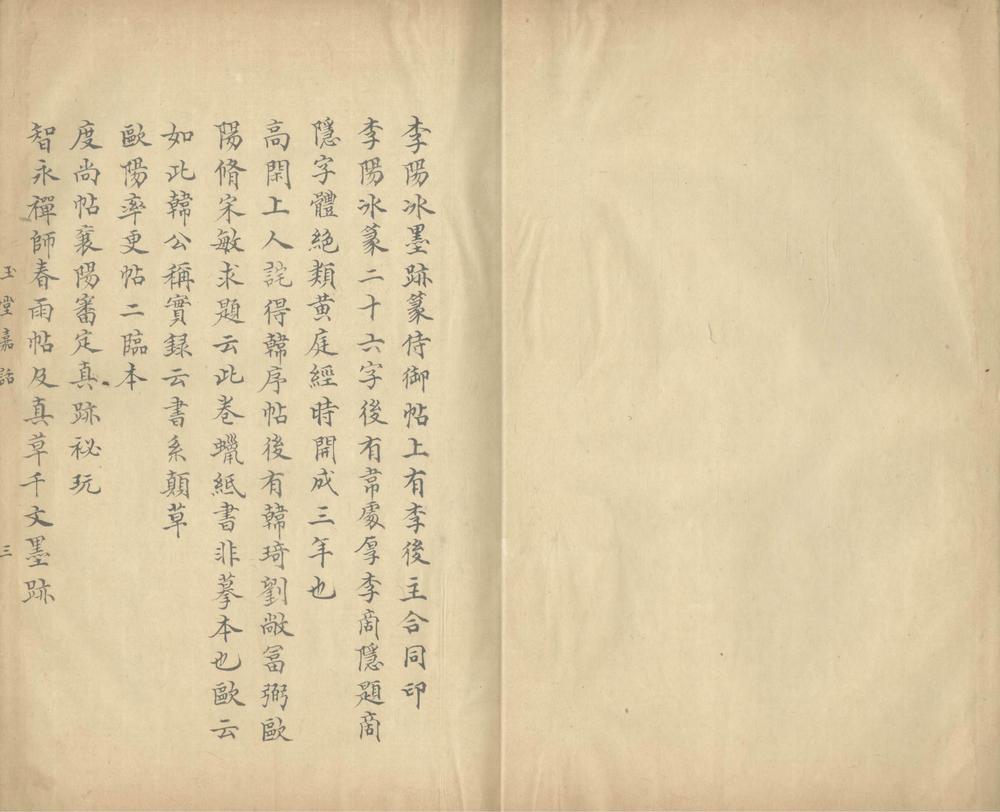 李陽冰墨跡篆侍御帖上有李後主合同印
李陽冰篆二十六字後有韋處厚李商隱題商
隱字體絕類黃庭經時開成三年也
高閑上人詫得韓序帖後有韓琦劉敞富弼歐
陽脩宋敏求題云此卷蠟紙書非摹本也歐云
如此韓公稱實錄云書系顛草
歐陽率更帖二臨本
度尚帖襄陽審定真跡秘玩
智永禪師春雨帖及真草千文墨跡
玉堂嘉話 三